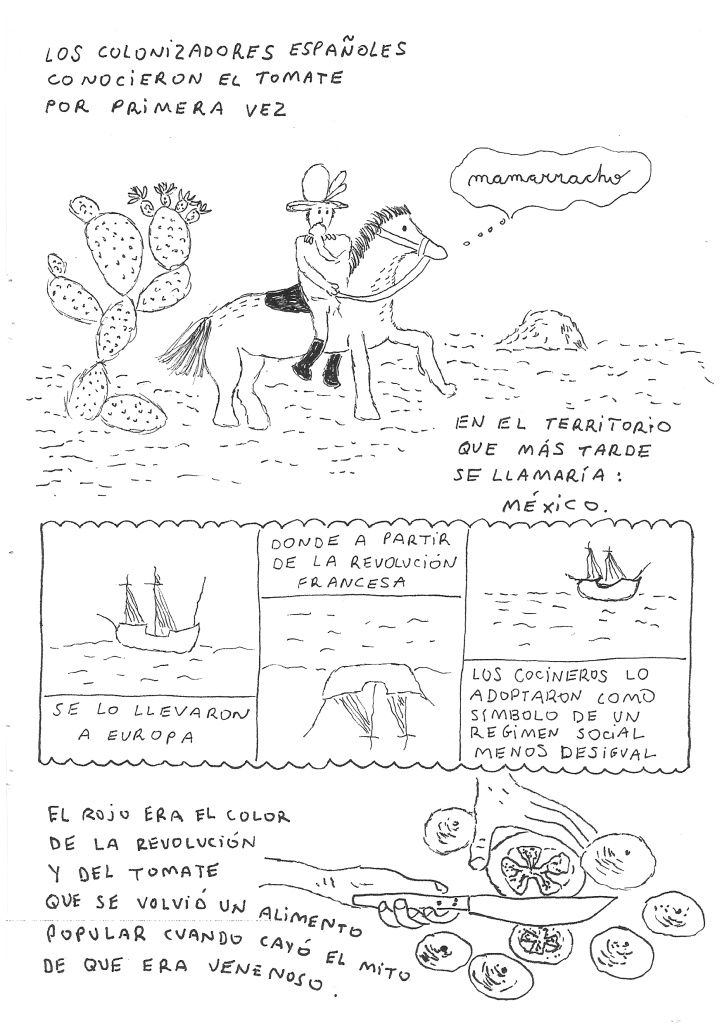 LOS COLONIZADORES ESPAÑOLES
CONOCIERON EL TOMATE
POR PRIMERA VEZ
mamarracho
EN EL TERRITORIO
QUE MÁS TARDE
SE LLAMARÍA:
MÉXICO.
SE LO LLEVARON
A EUROPA
DONDE A PARTIR
DE LA REVOLUCIÓN
FRANCESA
LOS COCINEROS LO
ADOPTARON COMO
SÍMBOLO DE UN
REGIMEN SOCIAL
MENOS DESIGUAL
EL ROJO ERA EL COLOR
DE LA REVOLUCIÓN
Y DEL TOMATE
QUE SE VOLVIÓ UN ALIMENTO
POPULAR CUANDO CAYÓ EL MITO
DE QUE ERA VENENOSO.